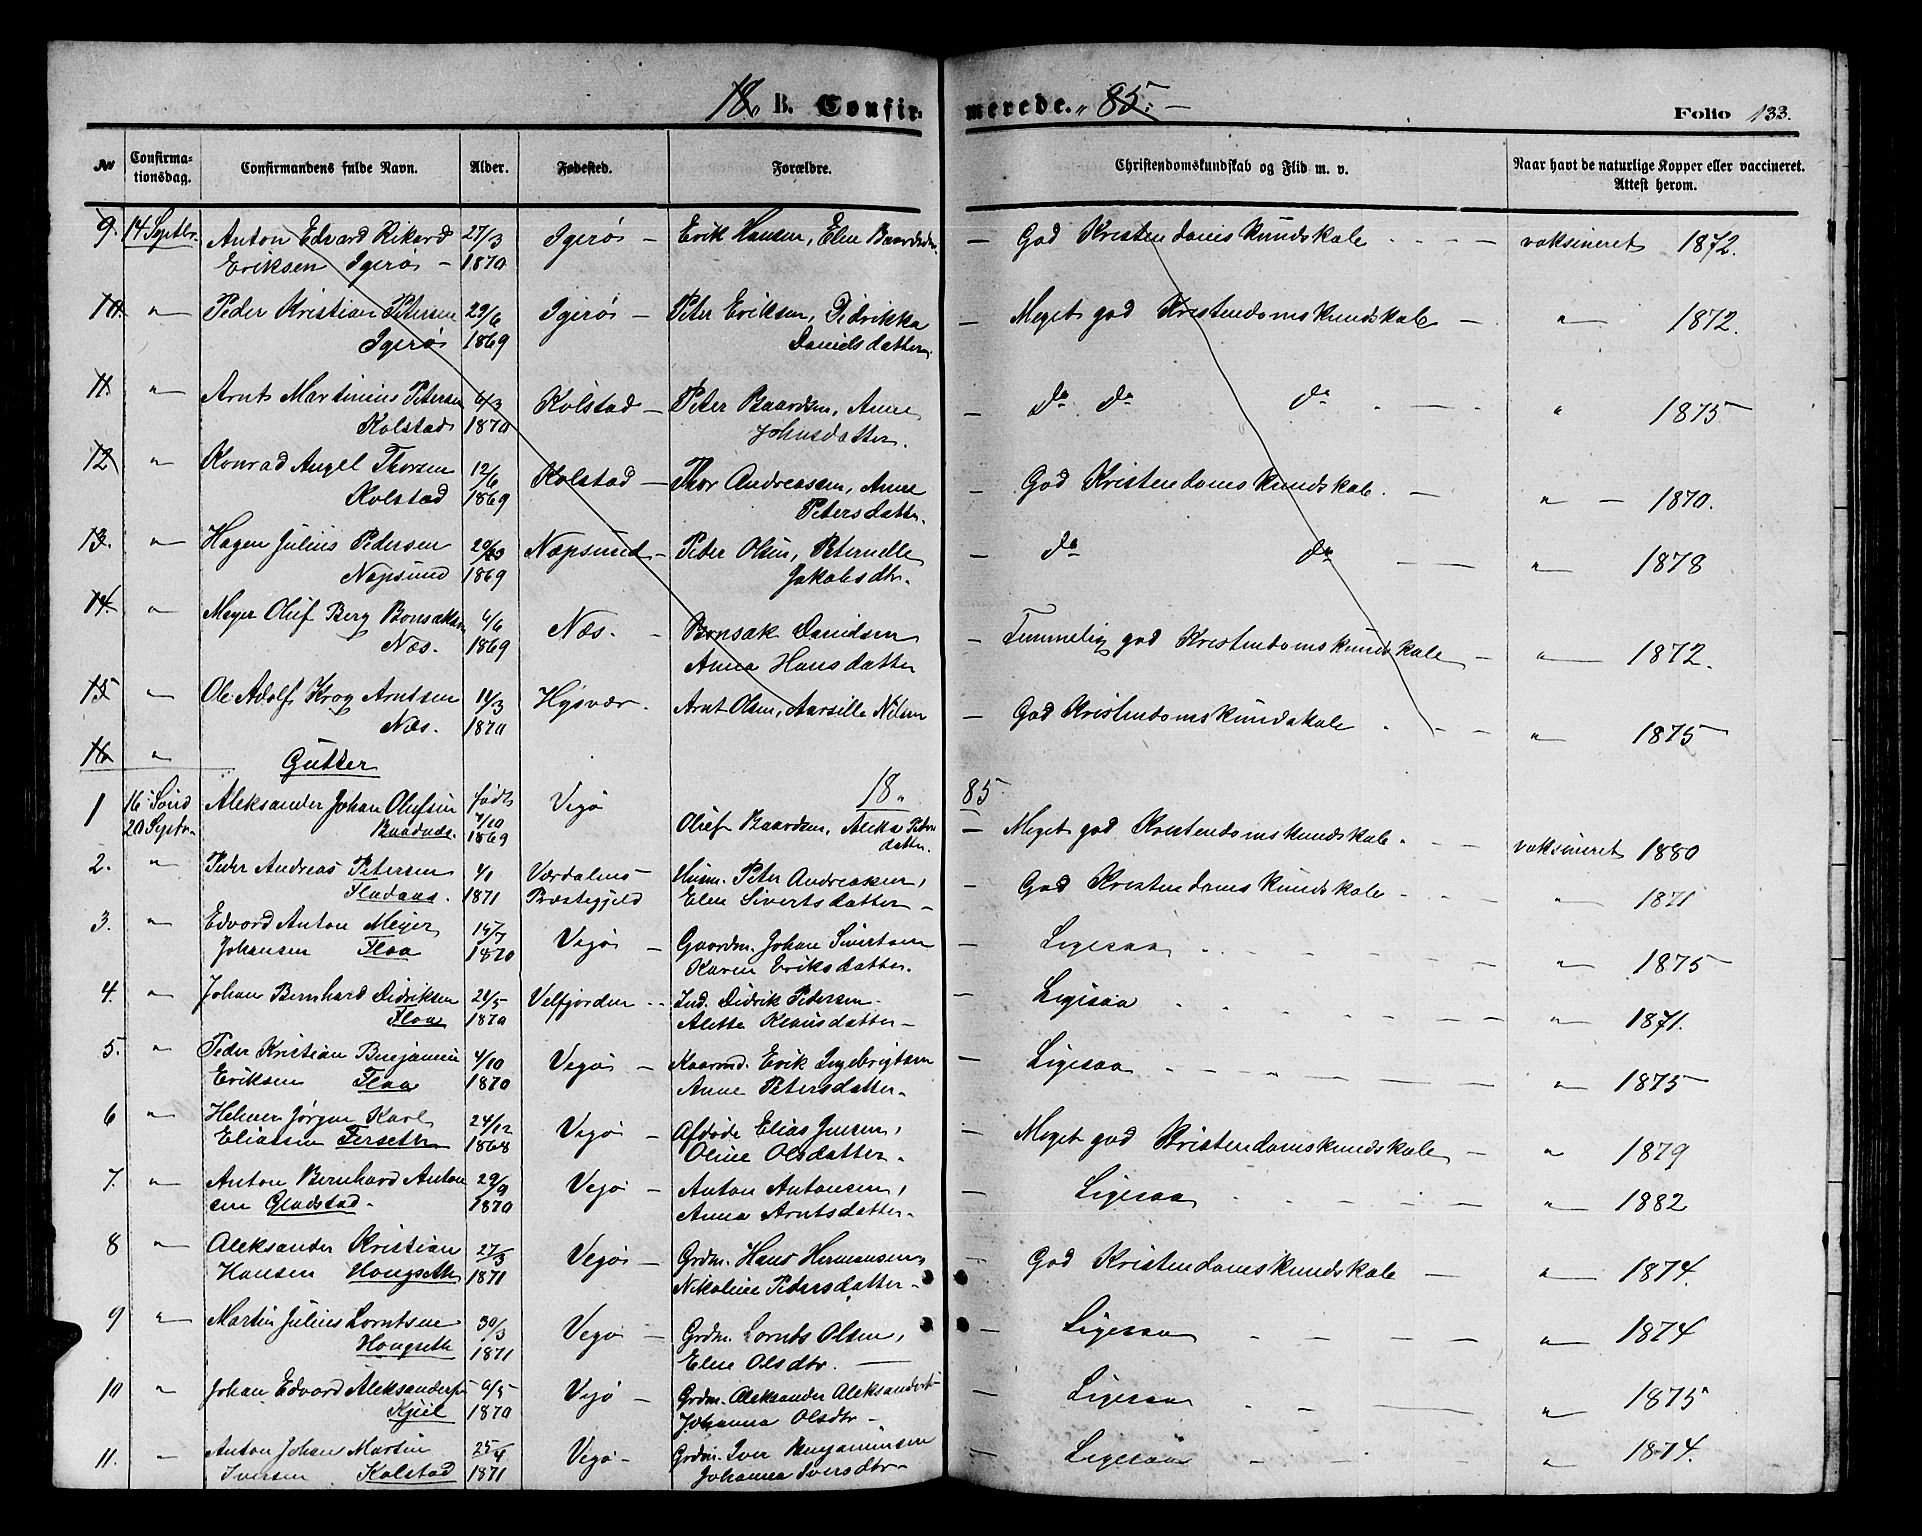 18 B. Confirmerede. 85. Folio 133.
No Confirmationsdag. Confirmandens fulde Navn. Alder. Fødested. Forældre. Christendomskundskab og Flid m. v. Naar havt de naturlige Kopper eller vaccineret. Attest herom.
9. 14 Septbr. Anton Edvard Rikard 27/3 Igerø — Erik Hansen, Elen Baardsdtr. — God Kristendomskundskab — vaksineret 1872.
Eriksen Igerø — 1870
10. " Peder Kristian Petersen 29/6 Igerø — Peter Eriksen, Didrikka — Meget god Kristendomskundskab — " 1872.
Igerø 1869 Danielsdatter.
11. " Arnt Martinius Petersen 6/3 Kolstad — Peter Baardsen, Anne — do do do " 1875
Kolstad 1870 Johnsdatter.
12 " Konrad Angel Thorsen 12/6 Kolstad — Thor Andreassen, Anne — God Kristendomskundskab. — " — 1870.
Kolstad 1869 Petersdatter.
13. " Hagen Julius Pedersen Næpsund — Peder Olsen, Peternelle — do do " 1878
Næpsund 1869 Jakobsdtr.
14. " Meyer Oluf Berg Bonsaksen 6/6 Næs. — Bonsak Davidsen — Temmelig god Kristendomskundskab — " 1872.
Næs. 1869 Anna Hansdatter
15 " Ole Adolf Krog Arntsen 11/3 Hysvær. Arnt Olsen, Aarsille Nilsen — God Kristendomskundskab — " 1875
Næs. 1870
16 " Gutter
18 85
1 16. Sønd Aleksander Johan Olufsen født Vegø Oluf Baardsen, Aleka Peters — Meget god Kristendomskundskab. — vaksineret 1880
20 Septr. 7/10 1869 datter.
2. " Peder Andreas Petersen 4/1 Værdalens Husm. Peter Andreassen, — God Kristendomskundskab — " 1871
Fladaas. 1871 Præstegjeld Elen Sivertsdatter —
3. " Edvard Anton Meyer 15/7 Vegø — Gaardm. Johan Sivertsen — Ligesaa " 1875
Johansen Floa 1870 Karen Eriksdatter.
4. " Johan Bernhard Didriksen 21/5 Velfjorden — Ind. Didrik Pedersen — — Ligesaa " 1871.
Floa 1870 Alette Klausdatter —
5. " Peder Kristian Benjamin 4/10 Vegø — Erik Ingebrigtsen — Ligesaa " 1875
Eriksen Floa 1870 Anne Petersdatter —
6 " Helmer Jørgen Karl 24/12 Vegø — Afdøde Elias Jensen, — Meget god Kristendomskundskab — " 1879
Eliassen Ferseth 1868 Oline Olsdatter —
7. " Anton Bernhard Anton 29/9 Vegø — Anton Antonsen, — Ligesaa " 1882
sen Gladstad. 1870 Anna Arntsdatter —
8 " Aleksander Kristian 27/3 Vegø — Grdm. Hans Hermansen, — God Kristendomskundskab — " 1874.
Hansen Hongseth 1871 Nikoline Pedersdatter —
9 " Martin Julius Lorntsen 30/3 Vegø — Grdm. Lornts Olsen, — Ligesaa " 1874
Hongseth 1871 Elen Olsdtr. —
10 " Johan Edvard Aleksandersen 6/5 Vegø Grdm. Aleksander Aleksandersen — Ligesaa " 1875
Kjul 1870 Johanna Olsdtr —
11. " Anton Johan Martin 25/4 Vegø — Grdm. Iver Benjaminsen — Ligesaa " 1874.
Iversen Kolstad 1871 Johanna Iversdtr —